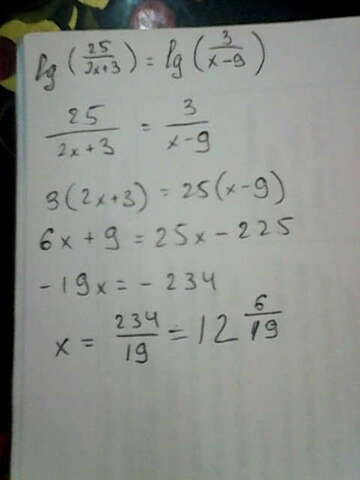 lg (25/2x+3) = lg (3/x-9)
25/2x+3 = 3/x-9
3(2x+3) = 25(x-9)
6x + 9 = 25x - 225
-19x = - 234
x = 234/19 = 12 6/19